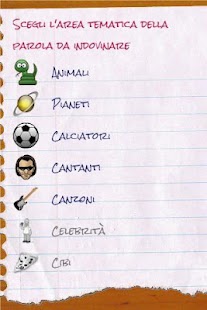 Scegli l'area tematica della
parola da indovinare
Animali
Pianeti
Calciatori
Cantanti
Canzoni
Celebrità
Cibi